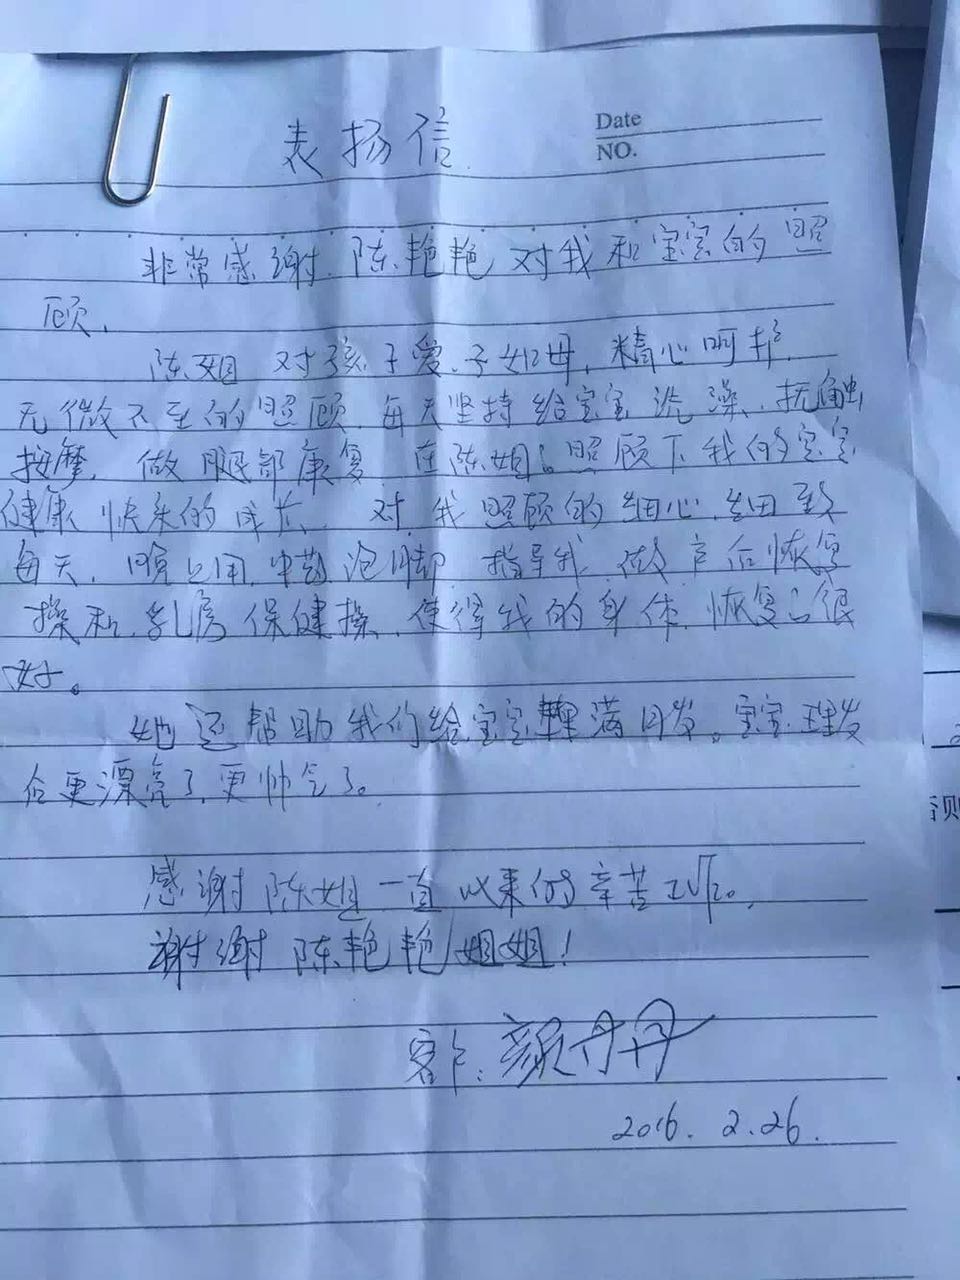 表扬信
Date
NO.
非常感谢陈艳艳对我和宝宝的照
顾,
陈姐对孩子爱子如母,精心呵护,
无微不至的照顾,每天坚持给宝宝洗澡、抚触
按摩,做腿部康复 在陈姐的照顾下我的宝宝
健康快乐的成长,对我照顾的细心、细致
每天,晚上用中药泡脚 指导我做产后恢复
操和乳房保健操,使得我的身体恢复的很
好。
她还帮助我们给宝宝理满月发。宝宝理发
后更漂亮了,更帅气了。
感谢陈姐一直以来的辛苦工作。
谢谢陈艳艳姐姐!
客户:颜丹丹
2016.2.26.
否则